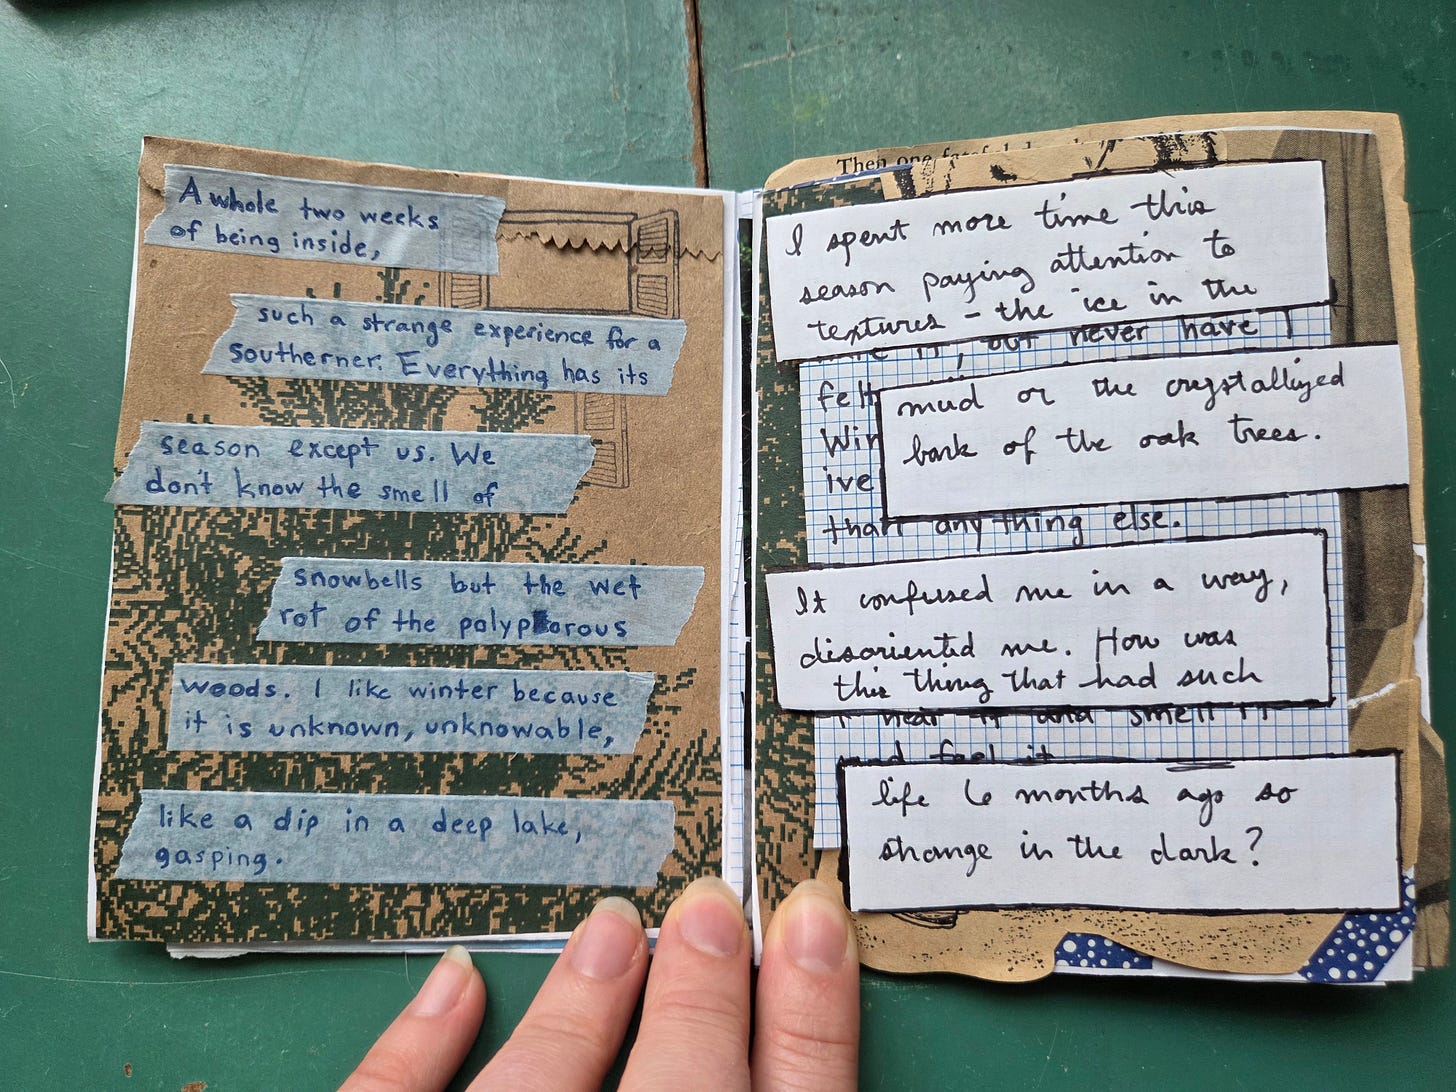 A whole two weeks
of being inside,
such a strange experience for a
southerner. Everything has its
season except us. We
don't know the smell of
snowbells but the wet
rot of the polyporous
woods. I like winter because
it is unknown, unknowable,
like a dip in a deep lake,
gasping.
Then one
I spent more time this
season paying attention to
textures – the ice in the
it, but never have I
felt
mud or the crystallized
bark of the oak trees.
than anything else.
It confused me in a way,
disoriented me. How was
this thing that had such
I hear it and smell it
and feel it
life 6 months ago so
strange in the dark?